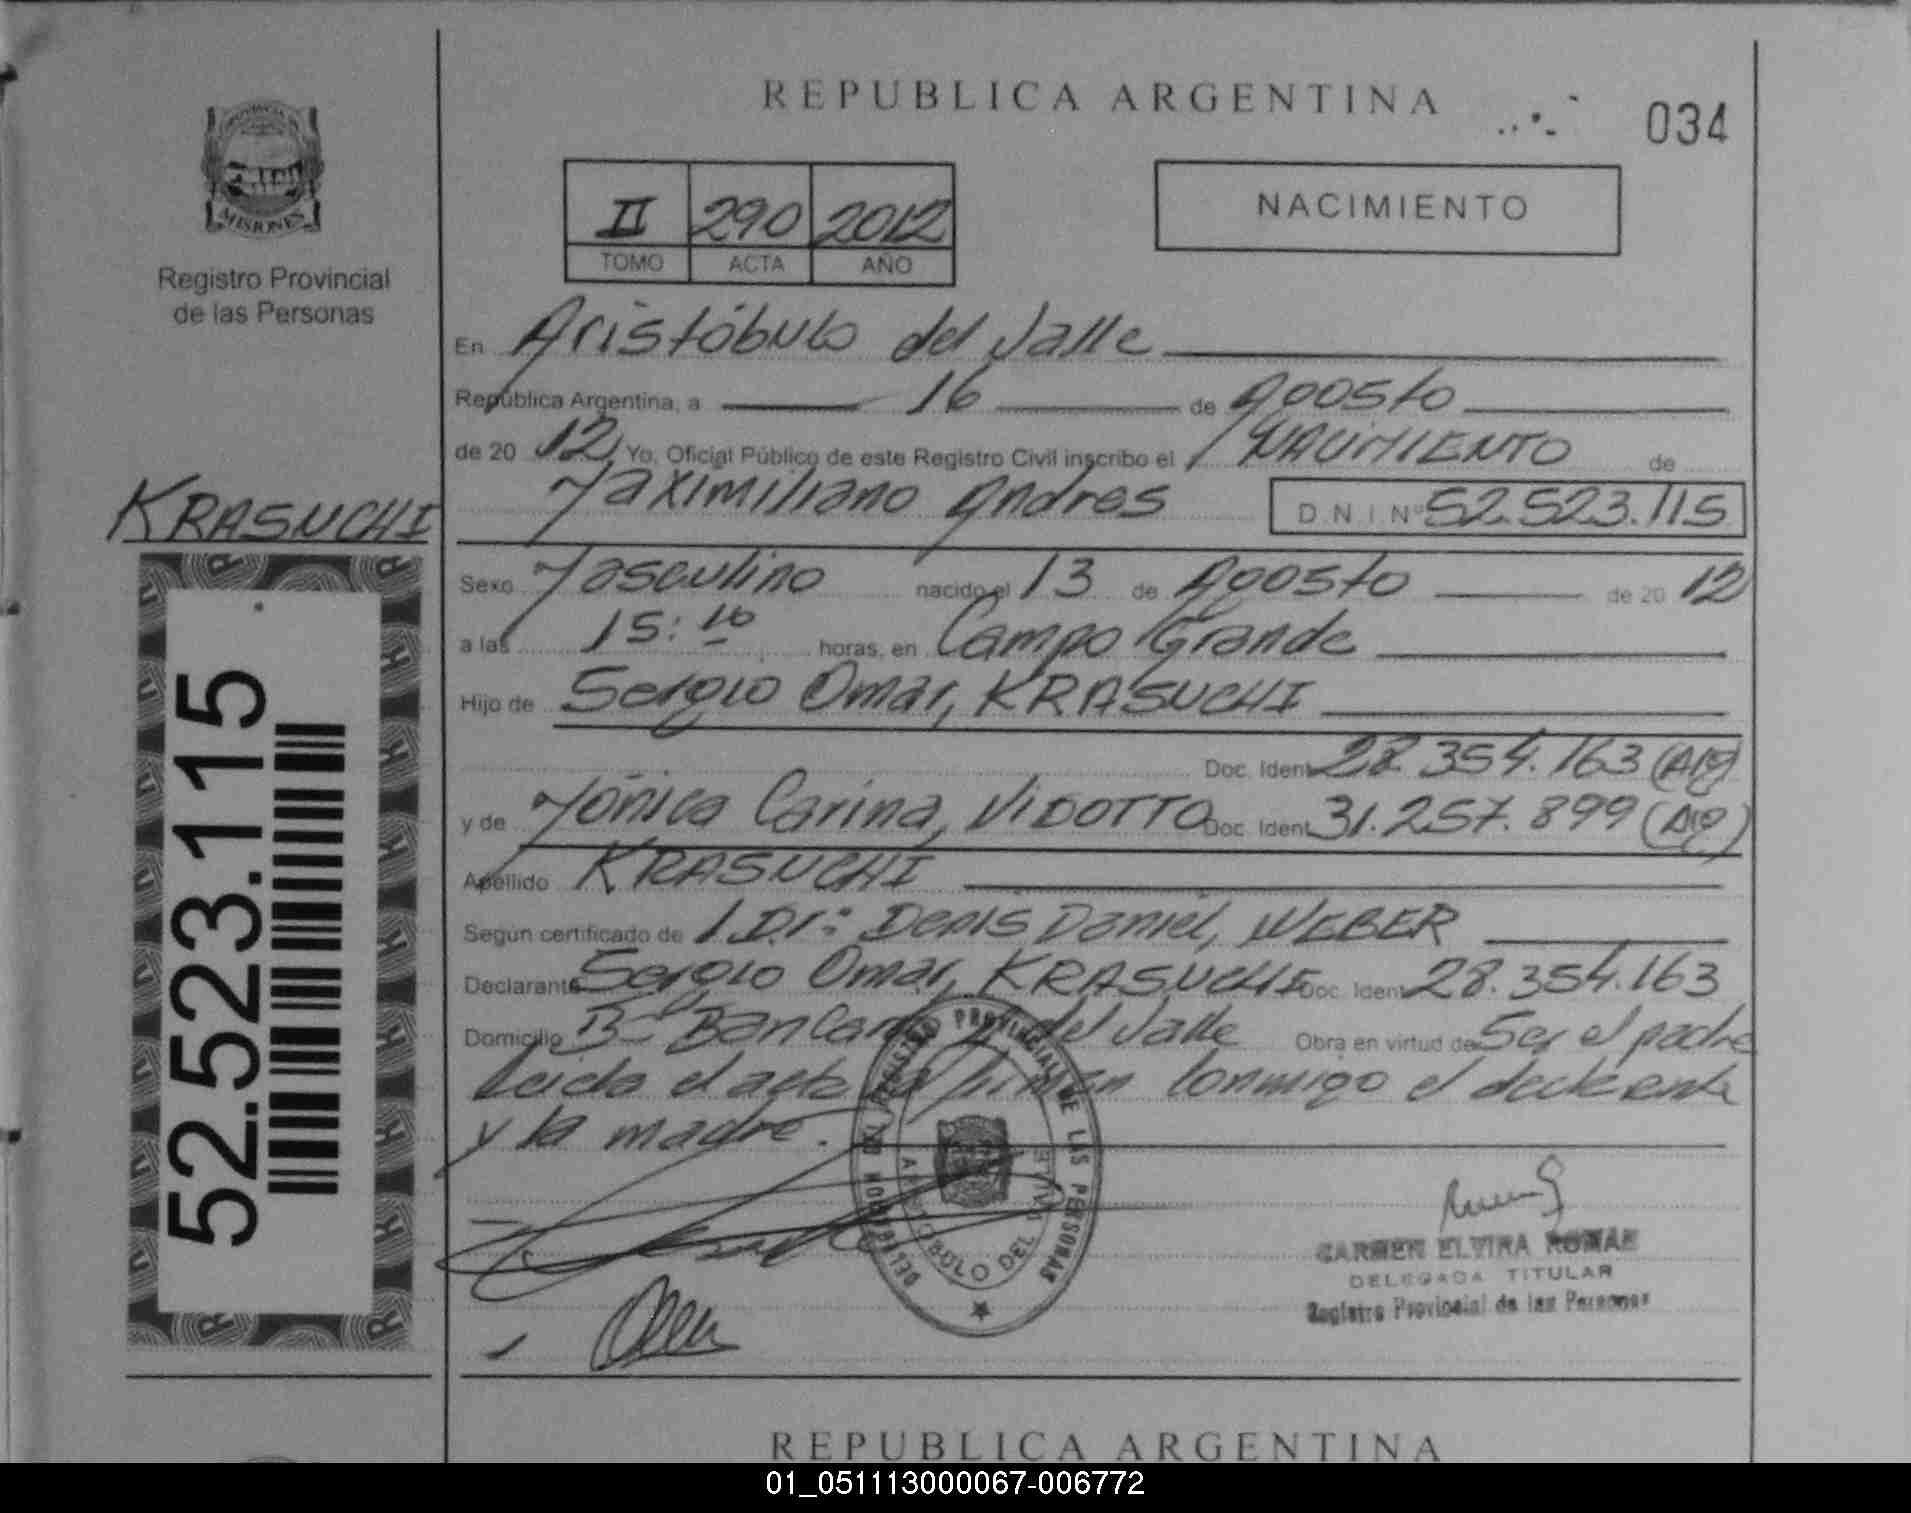 REPUBLICA ARGENTINA
034
MISIONES
Registro Provincial
de las Personas
II 290 2012
TOMO ACTA AÑO
NACIMIENTO
En Aristóbulo del Valle
República Argentina, a 16 de Agosto
de 20 12 Yo, Oficial Público de este Registro Civil inscribo el NACIMIENTO de
Maximiliano Andres D.N.I. Nº 52.523.115
KRASUCHI
Sexo Masculino nacido el 13 de Agosto de 20 12
a las 15:10 horas, en Campo Grande
Hijo de Sergio Omar, KRASUCHI
Doc. Ident 28.354.163 (Arg)
y de Mónica Carina, VIDOTTO Doc. Ident 31.257.899 (Arg)
Apellido KRASUCHI
Según certificado de Dr: Denis Daniel, WEBER
Declarante Sergio Omar, KRASUCHI Doc. Ident 28.354.163
Domicilio Bº del Valle Obra en virtud de Ser el padre
Leida el acta firman conmigo el declarante
y la madre.
52.523.115
DELEGACION DEL REGISTRO PROVINCIAL DE LAS PERSONAS
ARISTOBULO DEL VALLE
CARMEN ELVIRA ROMAN
DELEGADA TITULAR
Registro Provincial de las Personas
REPUBLICA ARGENTINA
01_051113000067-006772